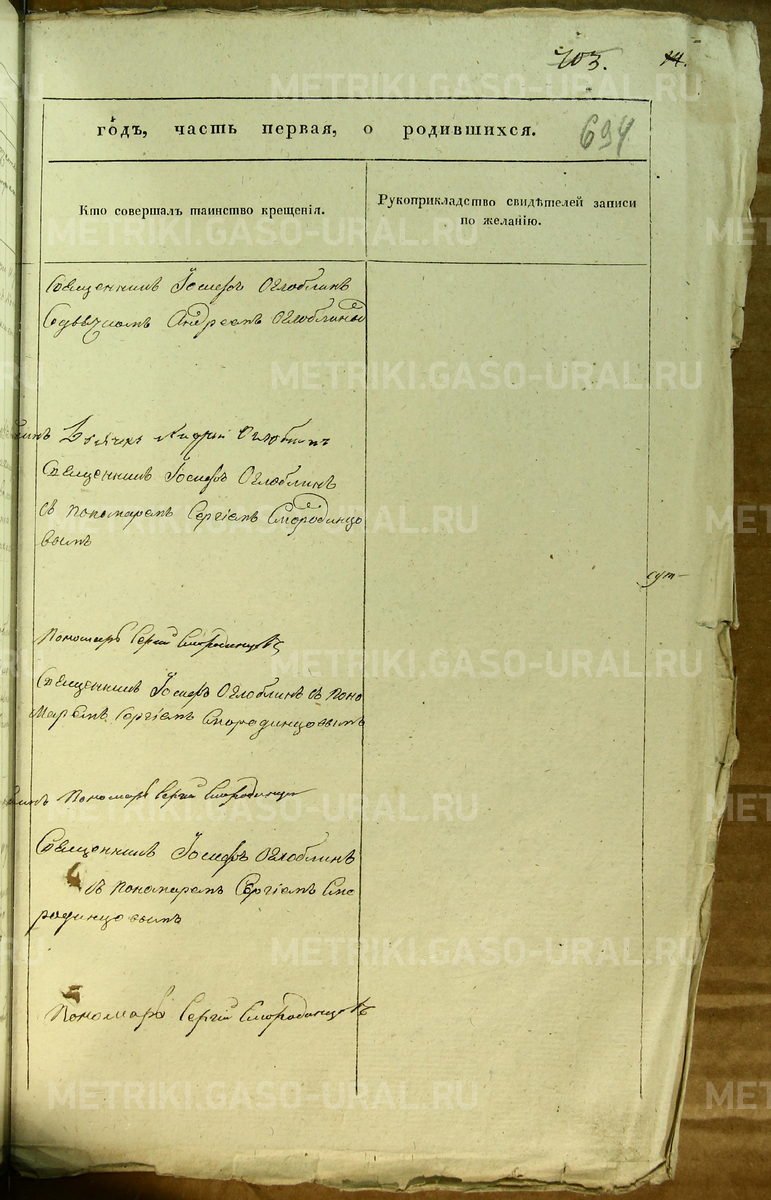 703. 14.
годъ, часть первая, о родившихся. 694
Кто совершалъ таинство крещенія.
Рукоприкладство свидѣтелей записи
по желанію.
Священникъ Іосифъ Оглоблинъ
Андреемъ Оглоблины
Андрей Оглоблинъ
Священникъ Іосифъ Оглоблинъ
съ пономаремъ Сергіемъ Смородинцо
вымъ
Пономарь Сергій Смородинцовъ
Священникъ Іосифъ Оглоблинъ съ поно
маремъ Сергіемъ Смородинцовымъ
Пономарь Сергій Смородинцовъ
Священникъ Іосифъ Оглоблинъ
съ пономаремъ Сергіемъ Смо
родинцовымъ
Пономарь Сергій Смородинцовъ
METRIKI.GASO-URAL.RU